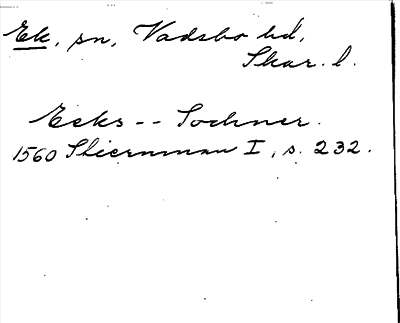 Ek, sn, Vadsbo hd,
Skar. l.
Ecks -- Sochner.
1560 Stiernman I, s. 232.